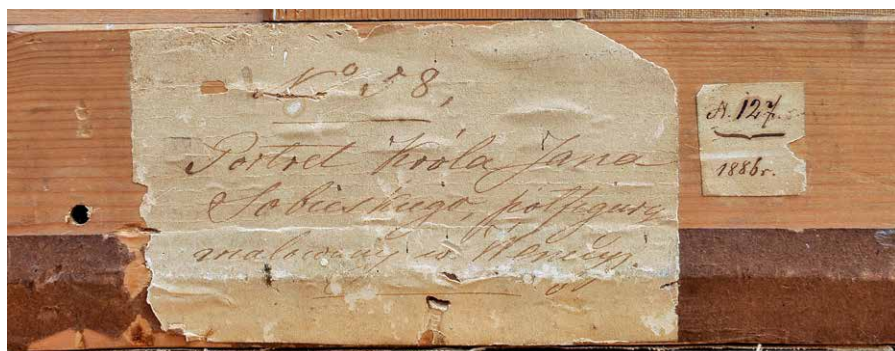 No 58,
Portret Króla Jana
Sobieskiego, półfigurą
malowany w Wenecyi.
A. 127.
1886r.